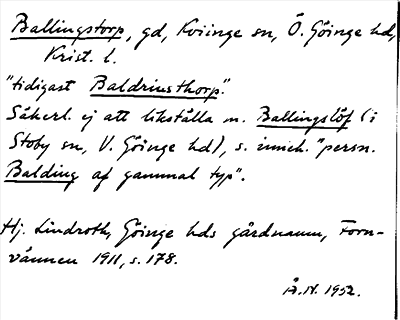 Ballingstorp, gd, Kviinge sn, Ö. Göinge hd,
Krist. l.
"tidigast Baldrinsthorp".
Säkerl. ej att likställa m. Ballingslöf (i
Stoby sn, V. Göinge hd), s. inneh. "persn.
Balding af gammal typ".
Hj. Lindroth, Göinge hds gårdnamn, Forn-
vännen 1911, s. 178.
Å.H. 1952.